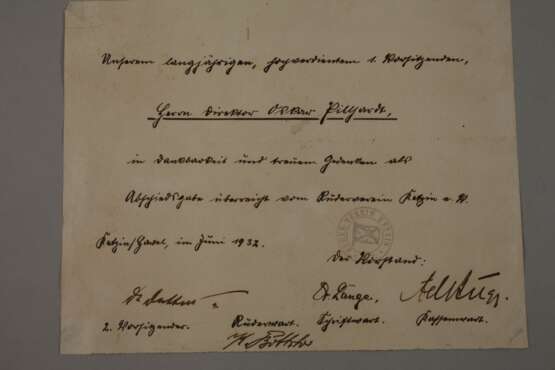 Unserem langjährigen, hochverdientem 1. Vorsitzenden,
Herrn Direktor Oskar Pillhardt,
in Dankbarkeit und treuem Gedenken als
Abschiedsgabe überreicht vom Ruderverein Ketzin e. V.
Ketzin/Havel, im Juni 1932.
Der Vorstand:
2. Vorsitzender. Ruderwart. Schriftwart. Kassenwart.